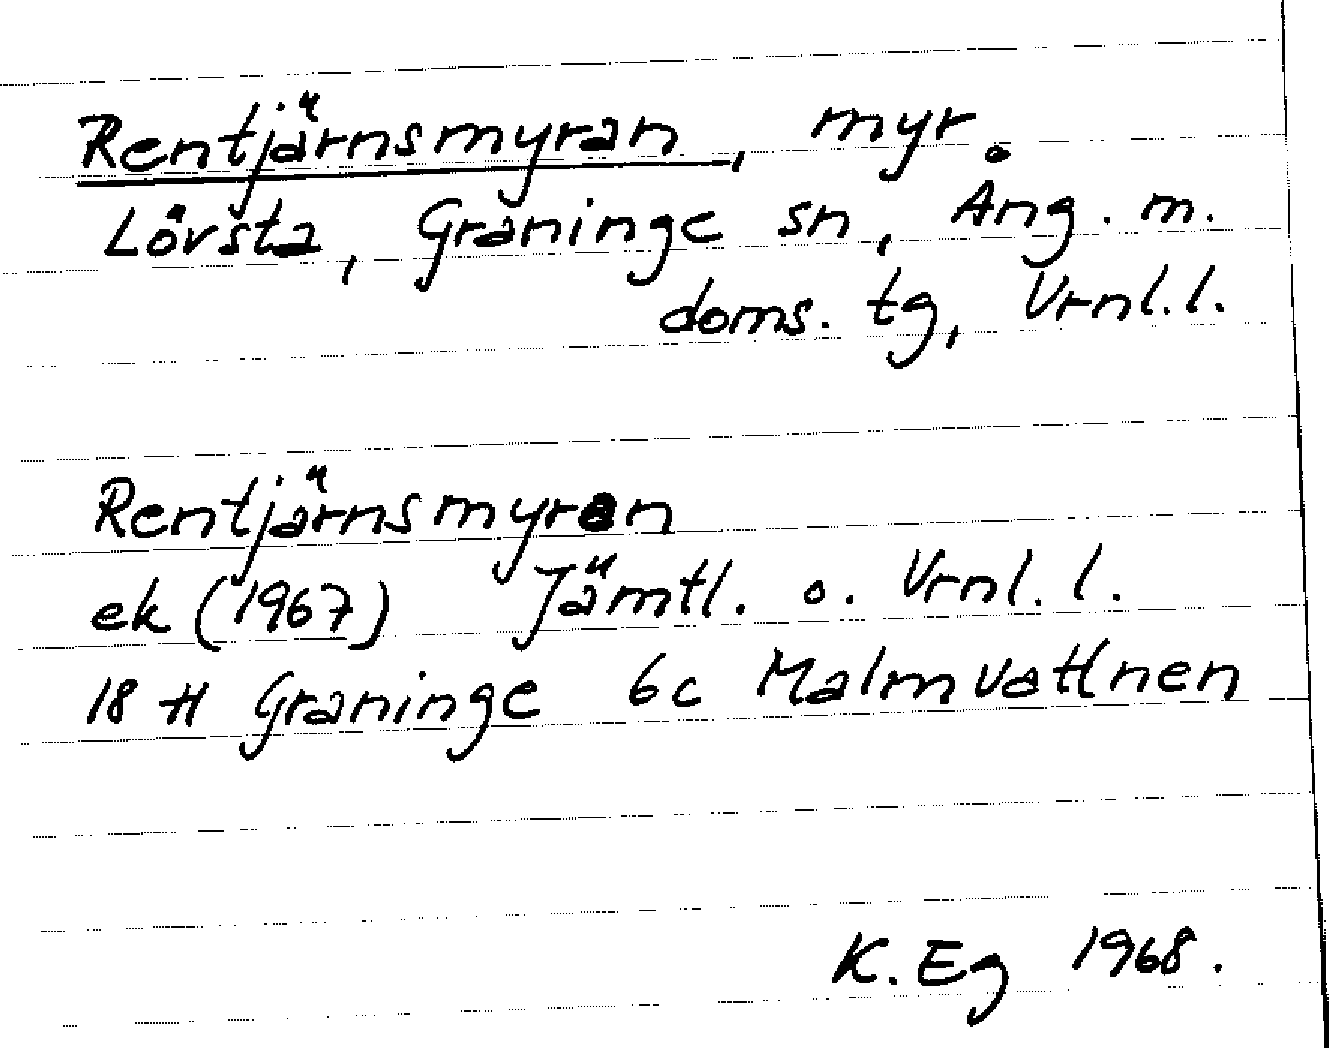 Rentjärnsmyran, myr.
Lövsta, Graninge sn, Ång. m.
doms. tg, Vrnl.l.
Rentjärnsmyran
ek (1967) Jämtl. o. Vrnl. l.
18 H Graninge 6c Malmvattnen
K. Eg 1968.